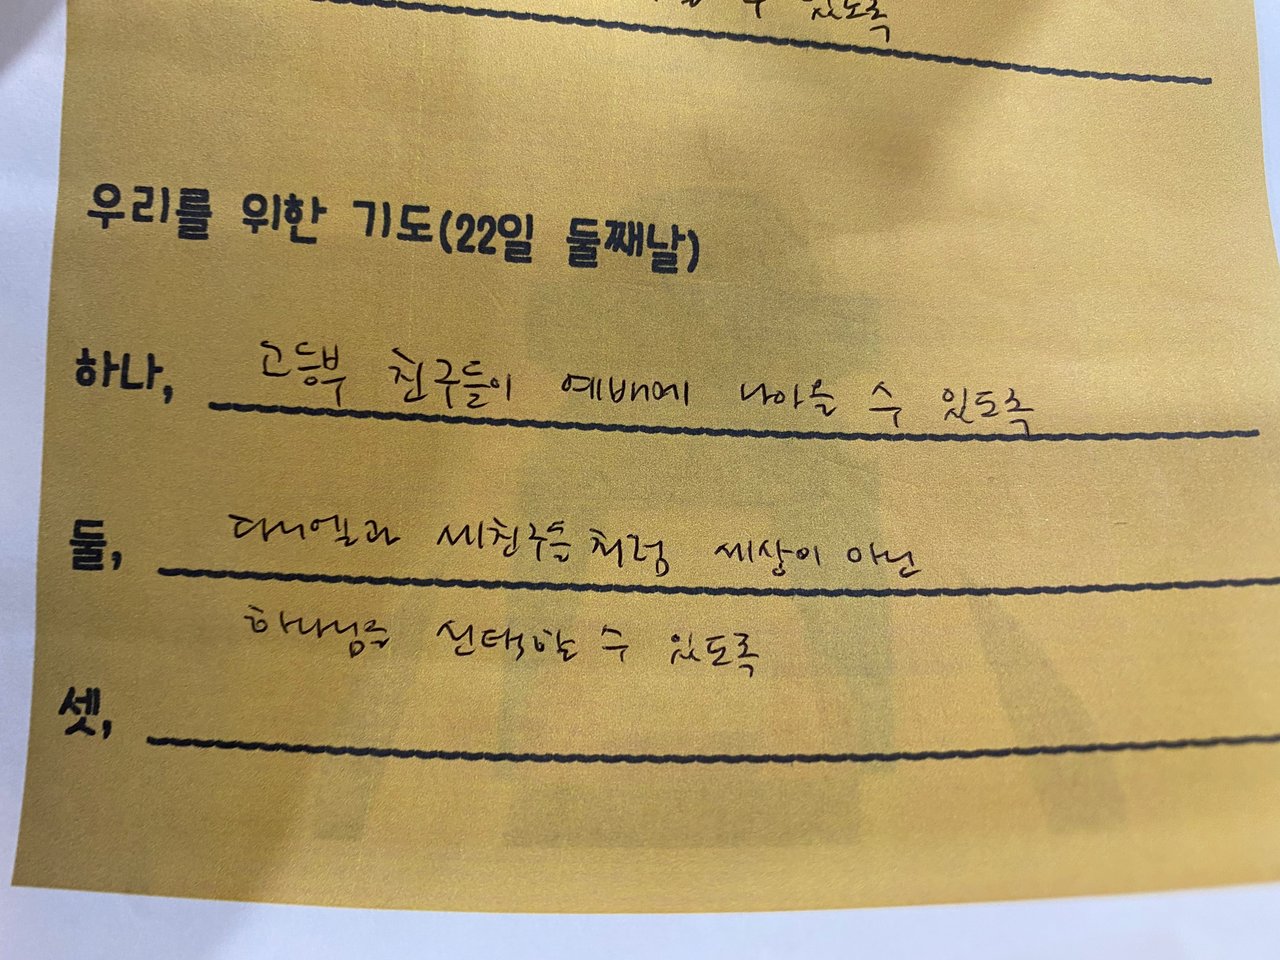 수 있도록
우리를 위한 기도(22일 둘째날)
하나, 고등부 친구들이 예배에 나아올 수 있도록
둘, 다니엘과 세친구들처럼 세상이 아닌
하나님을 선택할 수 있도록
셋,